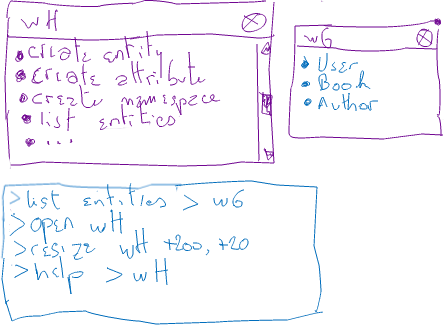 wH
• create entity
• create attribute
• create namespace
• list entities
• ...
wG
• User
• Book
• Author
> list entities > wG
> open wH
> resize wH +200, +20
> help > wH